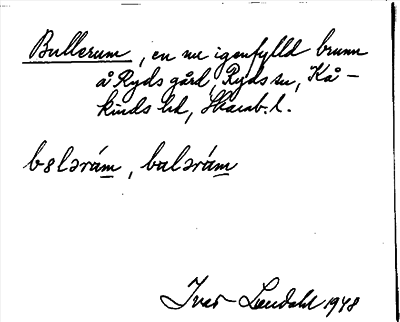 Bullerum, en nu igenfylld brunn
å Ryds gård, Ryds sn, Kå-
kinds hd, Skarab. l.
bɵlərám, balərám
Ivar Lundahl 1948